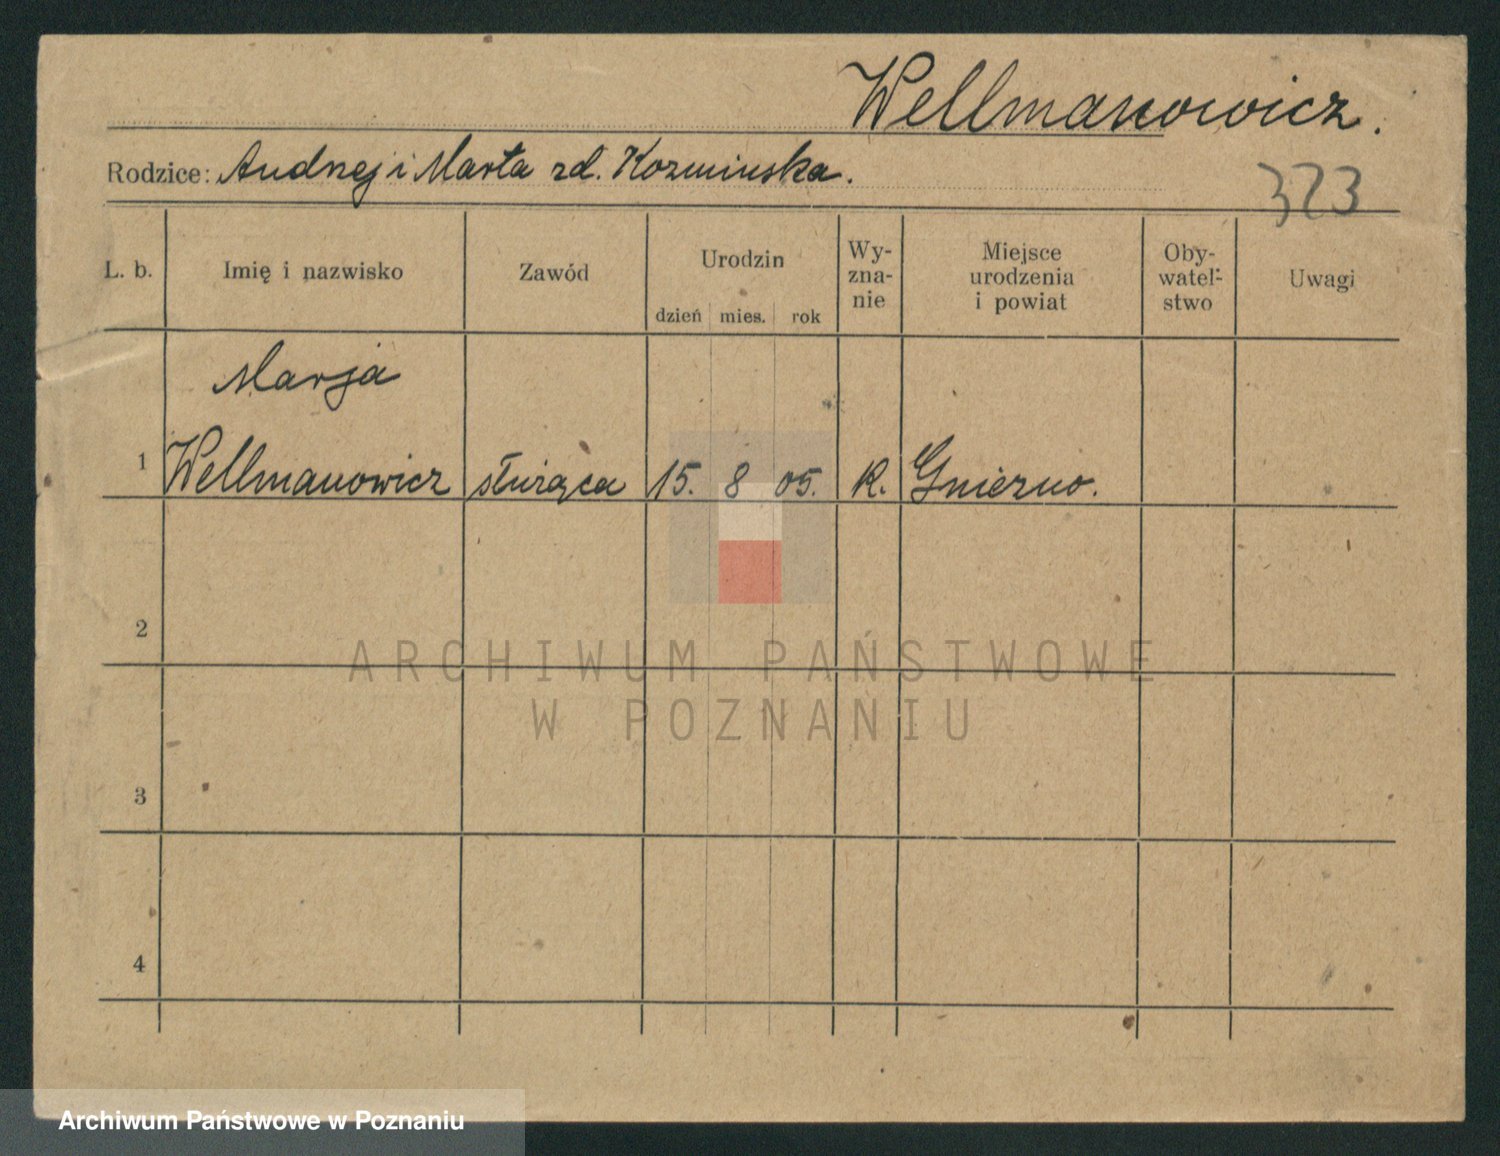 Wellmanowicz.
Rodzice: Andrzej i Marta zd. Kozmińska.
323
L. b. Imię i nazwisko Zawód Urodzin dzień mies. rok Wy-zna-nie Miejsce urodzenia i powiat Oby-watel-stwo Uwagi
Marja
1 Wellmanowicz służąca 15. 8 05. R. Gniezno.
2
ARCHIWUM PAŃSTWOWE
W POZNANIU
3
4
Archiwum Państwowe w Poznaniu